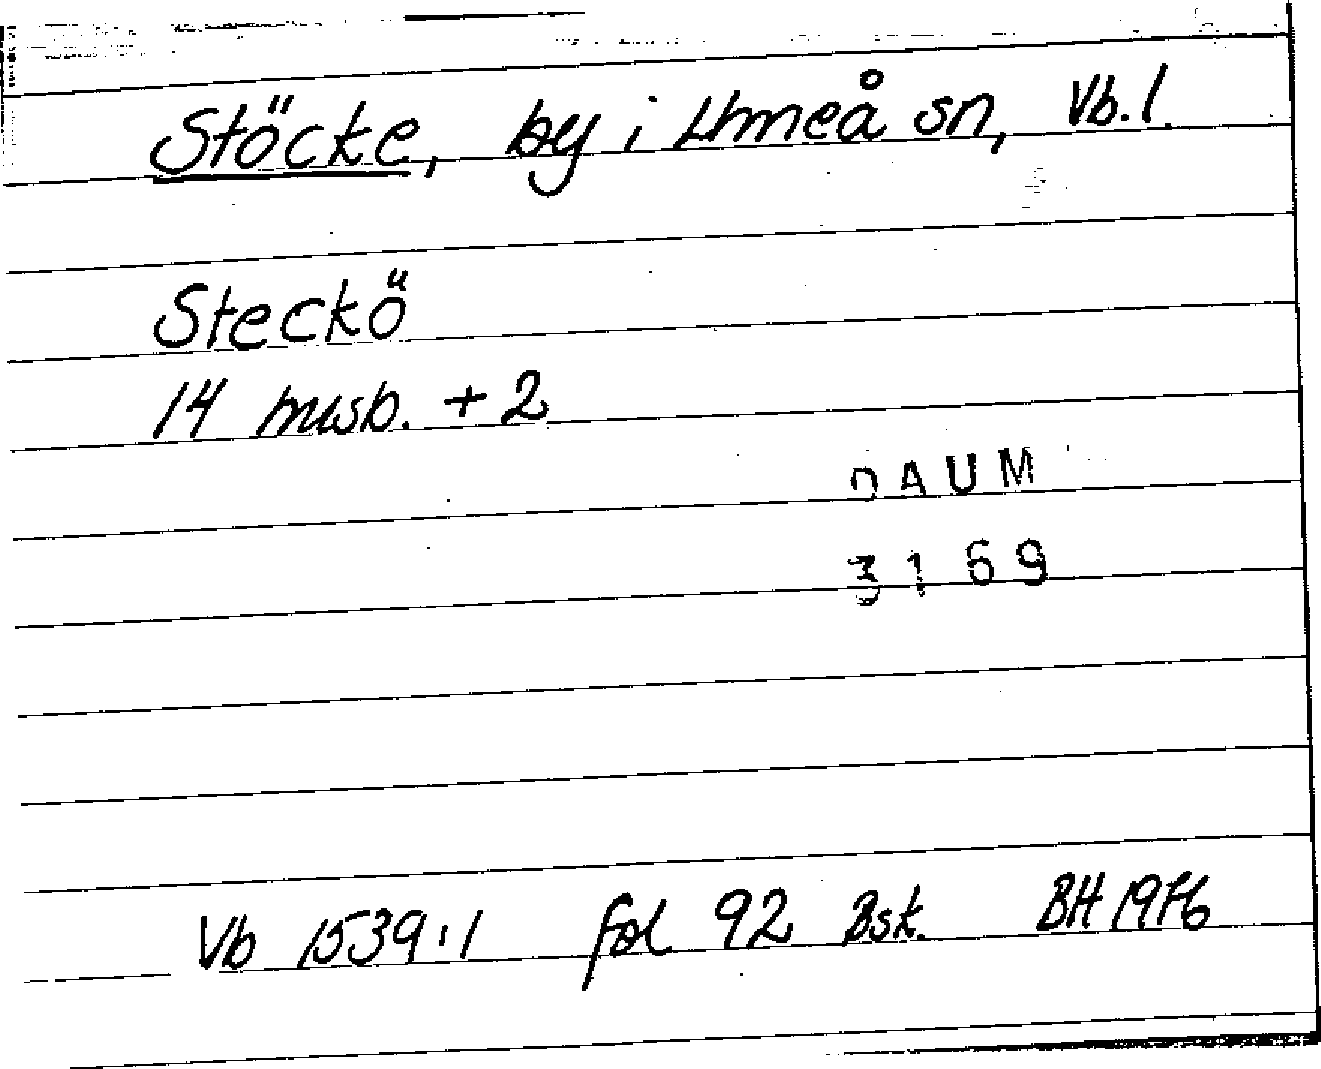 Stöcke, by i Umeå sn, Vb.l.
Steckö
14 mwsb. + 2
DAUM
3169
Vb 1539:1 fol 92 Bsk. BH 1976